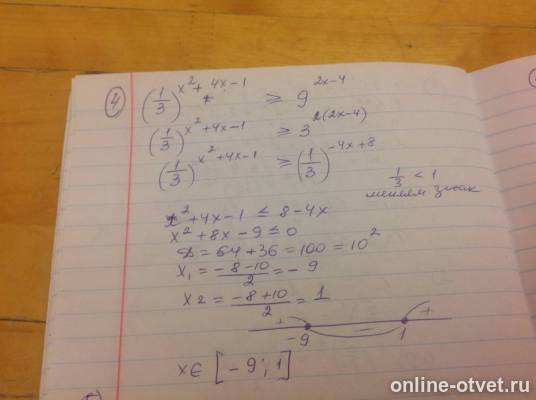 4 (1/3)^(x²+4x-1) ≥ 9^(2x-4)
(1/3)^(x²+4x-1) ≥ 3^(2(2x-4))
(1/3)^(x²+4x-1) ≥ (1/3)^(-4x+8)
1/3 < 1
меняем знак
x²+4x-1 ≤ 8-4x
x²+8x-9 ≤ 0
D = 64+36 = 100 = 10²
x₁ = (-8-10)/2 = -9
x2 = (-8+10)/2 = 1
+ - +
-9 1
x∈ [-9; 1]
online-otvet.ru